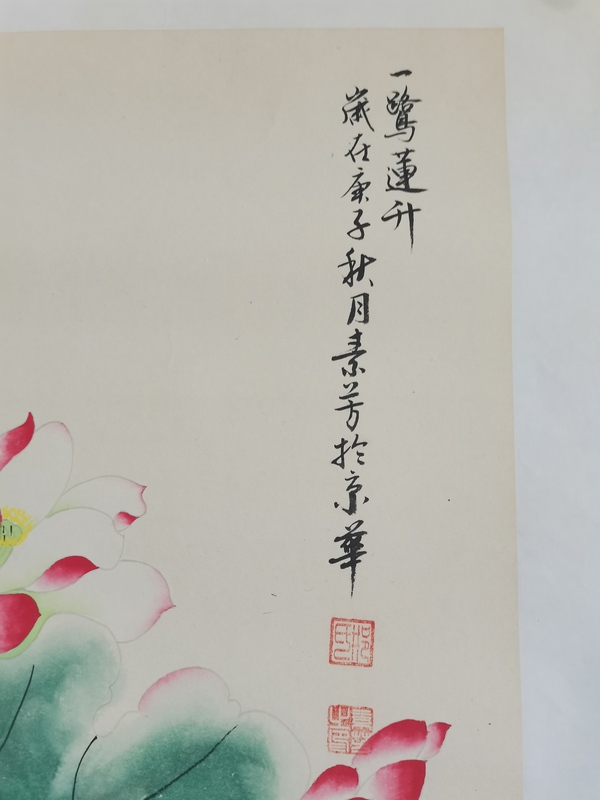 一鹭蓮升
歲在庚子秋月素芳於京華